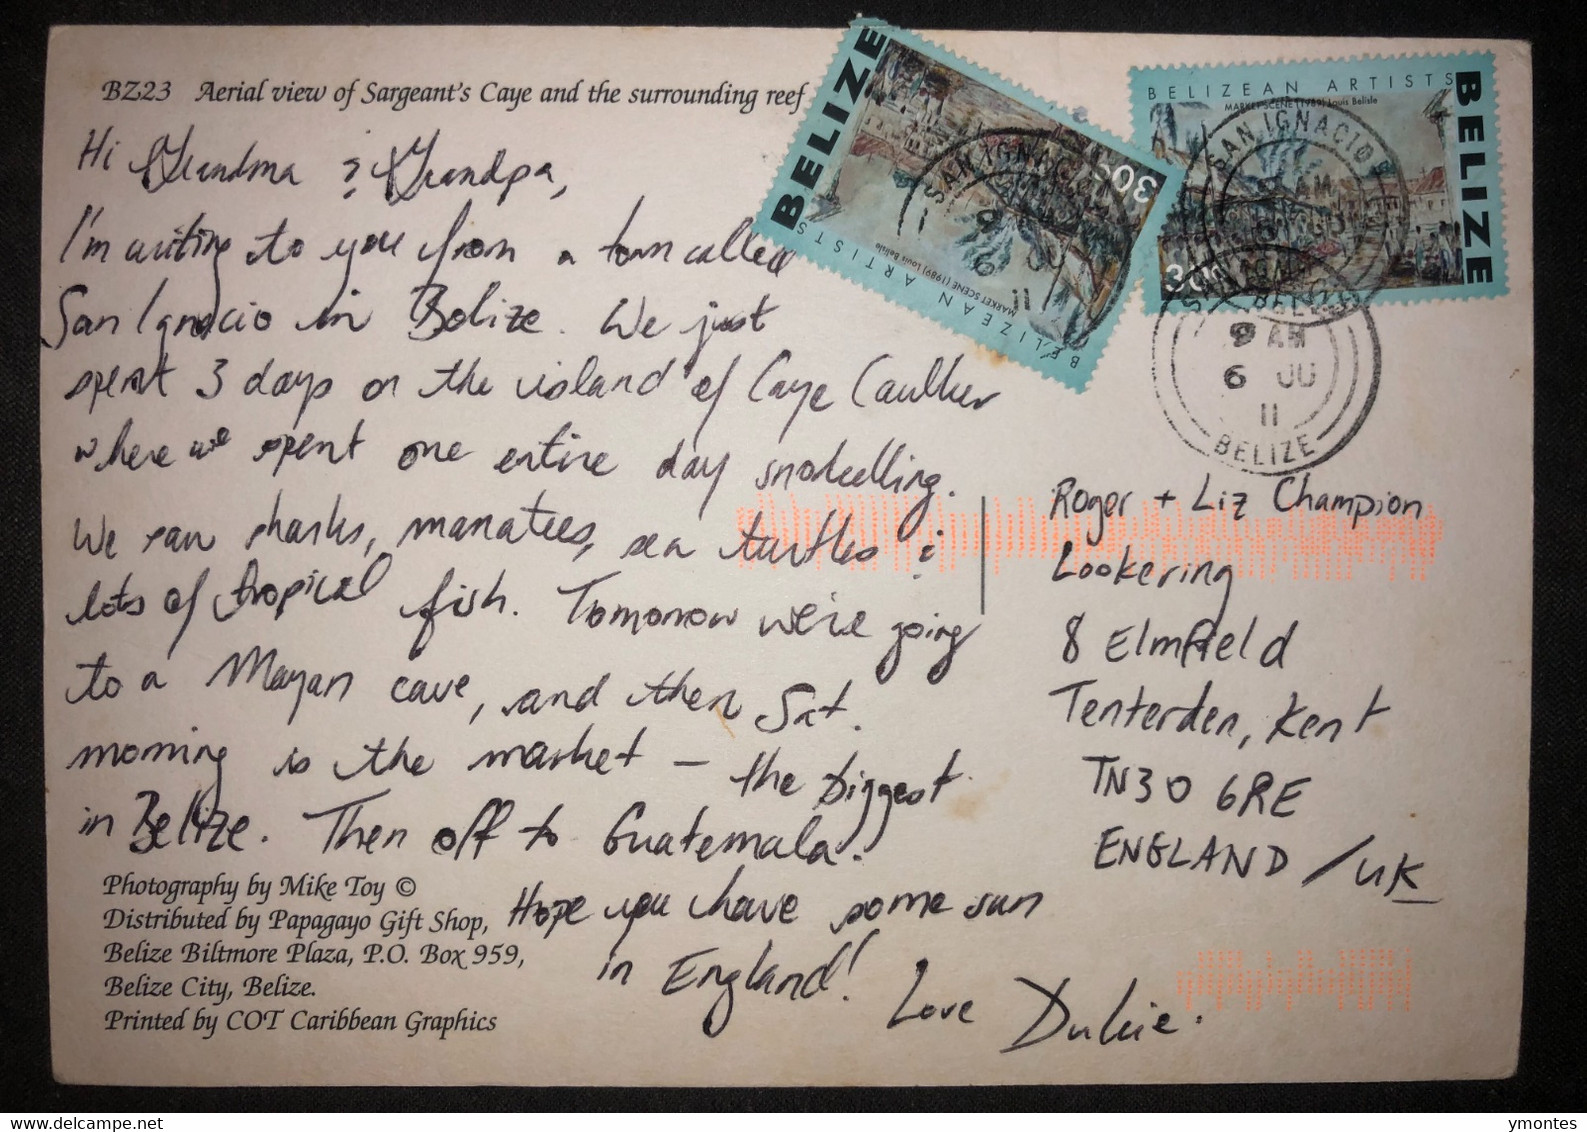 BZ23 Aerial view of Sargeant's Caye and the surrounding reef
Hi Grandma & Grandpa,
I'm writing to you from a town called
San Ignacio in Belize. We just
spent 3 days on the island of Caye Caulker
where we spent one entire day snorkelling.
We saw sharks, manatees, sea turtles &
lots of tropical fish. Tomorrow we're going
to a Mayan cave, and then Sat.
morning is the market – the biggest
in Belize. Then off to Guatemala.
Hope you have some sun
in England!
Love
Photography by Mike Toy ©
Distributed by Papagayo Gift Shop,
Belize Biltmore Plaza, P.O. Box 959,
Belize City, Belize.
Printed by COT Caribbean Graphics
BELIZE
30¢
BELIZEAN ARTISTS
MARKET SCENE (1989) Louis Belisle
SAN IGNACIO
9
6 JU
11
BELIZEAN ARTISTS
MARKET SCENE (1989) Louis Belisle
BELIZE
30¢
SAN IGNACIO
AM
BELIZE
9 AM
6 JU
11
BELIZE
Roger + Liz Champion
Lookering
8 Elmfield
Tenterden, Kent
TN30 6RE
ENGLAND / UK
ymontes